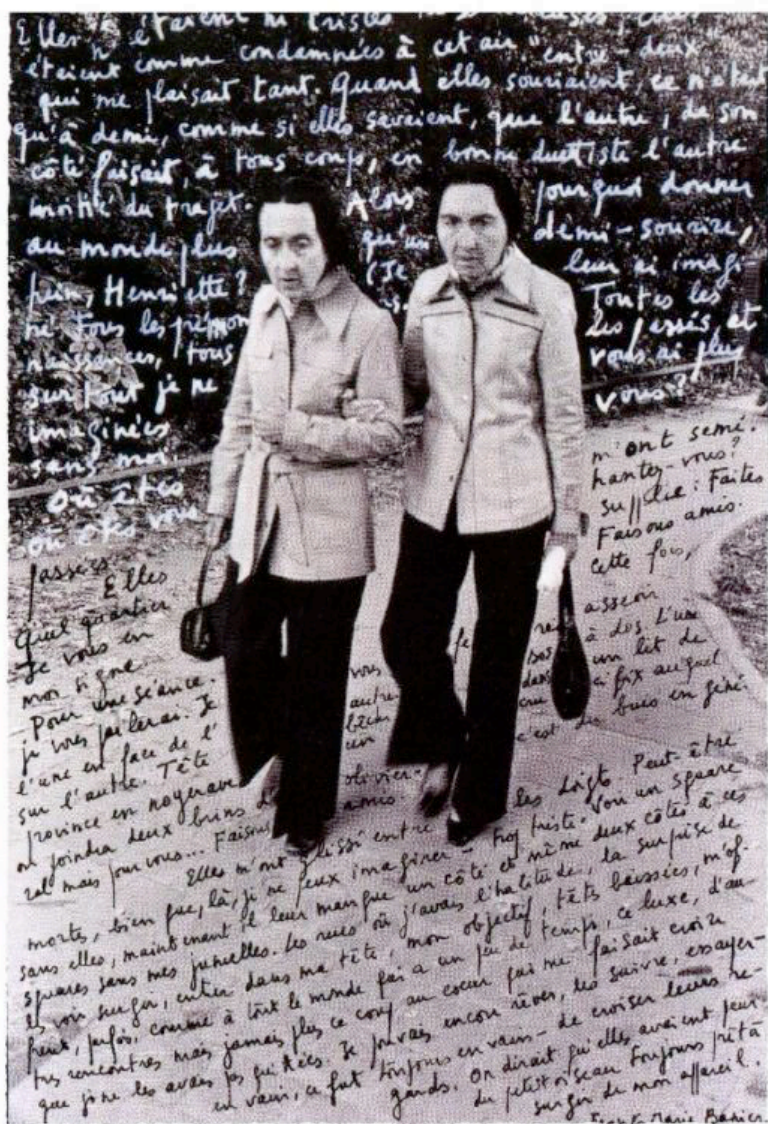 Elles n'étaient ni tristes ni
étaient comme condamnées à cet air "entre-deux
qui me plaisait tant. Quand elles souriaient, ce n'était
qu'à demi, comme si elles savaient, que l'autre, de son
côté faisait, à tous coups, en bonne duettiste l'autre
moitié du trajet. Alors pourquoi donner
au monde plus qu'un demi-sourire,
hein, Henriette? (Je leur ai imagi
né tous les prénoms. Toutes les
naissances, tous les passés et
surtout je ne vous ai plus
imaginées vous?
sans moi.
Où êtes
Où êtes vous
m'ont semé.
hantez-vous?
supplie: Faites
Faisons amis.
cette fois,
passées Elles
Quel quartier
Je vous en
moi signe.
Pour une séance. vous asseoir
je vous parlerai. Je dos à dos. L'une
l'une en face de l'autre dans un lit de
sur l'autre. Tête auquel
province en noyerave un c'est du buis en géné-
on joindra deux brins d'olivier.
ral mais pour vous... Faisons amis
Elles m'ont glissé entre les doigts. Peut-être
mortes, bien que, là, je ne peux imaginer - trop triste. Voir un square
sans elles, maintenant il leur manque un côté et même deux côtés à ces
squares sans mes jumelles. Les rues où j'avais l'habitude, la surprise de
les voir surgir, entrer dans ma tête, mon objectif, têtes baissées, m'of-
frent, parfois, comme à tout le monde qui a un peu de temps, ce luxe, d'au-
tres rencontres mais jamais plus ce coup au coeur qui me faisait croire
que je ne les avais pas quittées. Je pouvais encore rêver, les suivre, essayer-
en vain, ce fut toujours en vain - de croiser leurs re-
gards. On dirait qu'elles avaient peur
du petit oiseau toujours prêt à
surgir de mon appareil.
François-Marie Banier